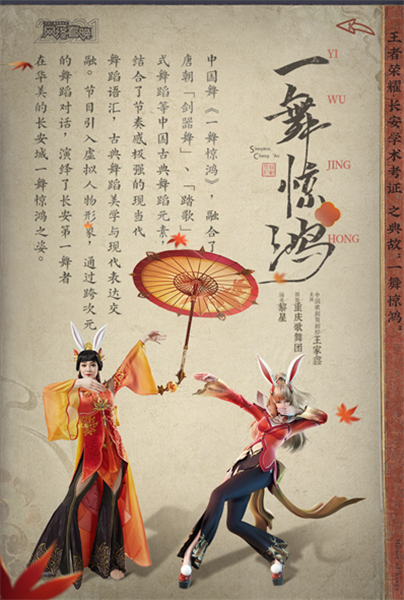 王者荣耀·长安学术考证之典故:一舞惊鸿。
一舞惊鸿
YI
WU
JING
HONG
中国歌剧舞剧院
王家鑫
重庆歌舞团
黎星
中国舞《一舞惊鸿》,融合了
唐朝「剑器舞」、「踏歌」
式舞蹈等中国古典舞蹈元素,
结合了节奏感极强的现当代
舞蹈语汇,古典舞蹈美学与现代表达交
融。节目引入虚拟人物形象,通过跨次元
的舞蹈对话,演绎了长安第一舞者
在华美的长安城一舞惊鸿之姿。